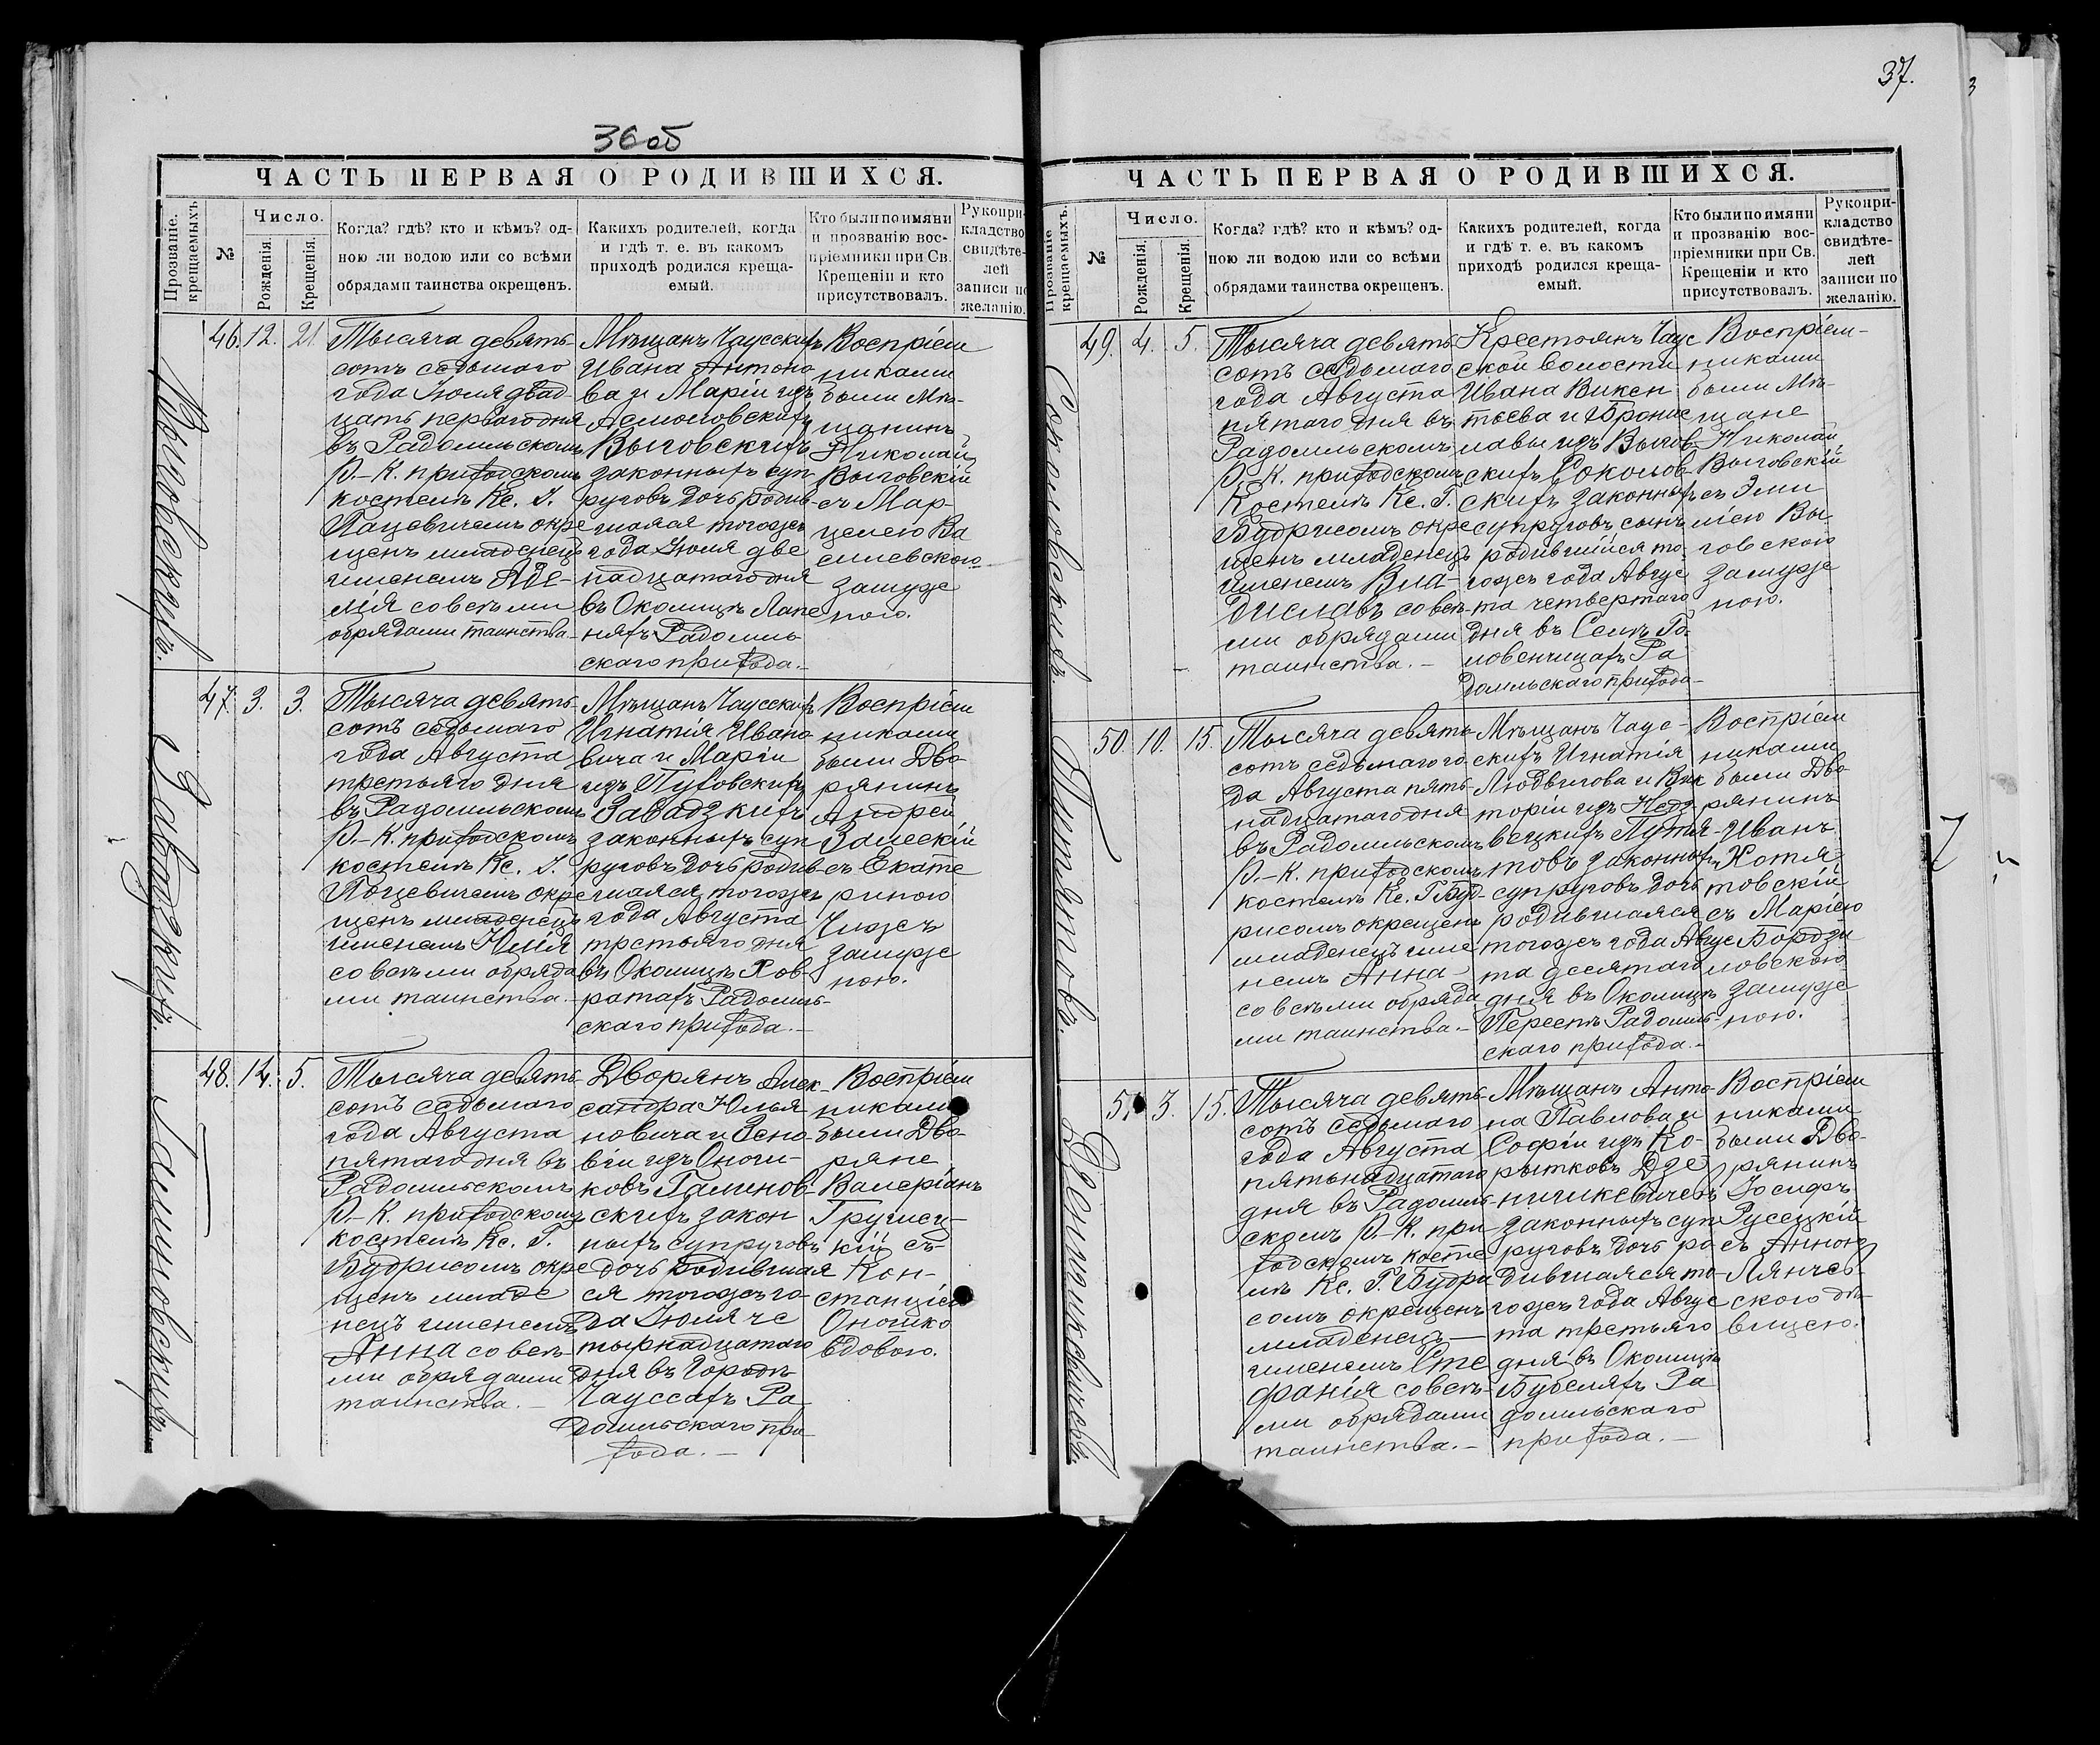 36 об
ЧАСТЬ ПЕРВАЯ О РОДИВШИХСЯ.
Прозваніе крещаемыхъ.
№
Число.
Рожденія.
Крещенія.
Когда? гдѣ? кто и кѣмъ? од-
ною ли водою или со всѣми
обрядами таинства окрещенъ.
Какихъ родителей, когда
и гдѣ т. е. въ какомъ
приходѣ родился креща-
емый.
Кто были по имяни
и прозванію вос-
пріемники при Св.
Крещеніи и кто
присутствовалъ.
Рукопри-
кладство
свидѣте-
лей
записи по
желанію.
Выговскихъ.
46. 12. 21.
Тысяча девять-
сотъ седьмаго
года Іюля двад-
цать перваго дня
въ Радомльскомъ
Р.-К. приходскомъ
костелѣ Кс. І.
Пацевичемъ окре
щенъ младенецъ
именемъ Аде-
лія со всѣми
обрядами таинства.
Мѣщанъ Чаусскихъ
Ивана Антоно
ва и Маріи изъ
Асмоловскихъ
Выговскихъ
законныхъ суп-
руговъ дочь родив-
шаяся тогожъ
года Іюля две
надцатаго дня
въ Околицѣ Лапе
няхъ Радомль
скаго прихода.-
Воспріем
никами
были Мѣ-
щанинъ
Николай
Выговскій
съ Мар-
целею Ва
силевскою
замуж
ною.
Завадзкихъ.
47. 3. 3.
Тысяча девять-
сотъ седьмаго
года Августа
третьяго дня
въ Радомльскомъ
Р.-К. приходскомъ
костелѣ Кс. І.
Пацевичемъ окре
щенъ младенецъ
именемъ Юлія
со всѣми обряда
ми таинства.-
Мѣщанъ Чаусскихъ
Игнатія Ивано
вича и Маріи
изъ Пуховскихъ
Завадзкихъ
законныхъ суп
руговъ дочь родив-
шаяся тогожъ
года Августа
третьяго дня
въ Околицѣ Хов-
ратахъ Радомль-
скаго прихода.-
Воспріем
никами
были Дво-
рянинъ
Андрей
Залескій
съ Екате
риною
Чижъ
замуж
ною.
Галиновскихъ.
48. 14. 5.
Тысяча девять-
сотъ седьмаго
года Августа
пятаго дня въ
Радомльскомъ
Р.-К. приходскомъ
костелѣ Кс. Г.
Будрисомъ окре
щенъ младе
нецъ именемъ
Анна со всѣ-
ми обрядами
таинства.-
Дворянъ Алек-
сандра Юлья
новича и Зено-
віи изъ Оноги-
ковъ Галинов-
скихъ закон
ныхъ супруговъ
дочь родившая
ся тогожъ го-
да Іюля че
тырнадцатаго
дня въ Городѣ
Чауссахъ Ра
домльскаго при-
хода.-
Воспріем
никами
были Дво-
ряне
Валеріанъ
кій съ
Кон-
станціею
Оношко
вдовою.
37.
ЧАСТЬ ПЕРВАЯ О РОДИВШИХСЯ.
Прозваніе крещаемыхъ.
№
Число.
Рожденія.
Крещенія.
Когда? гдѣ? кто и кѣмъ? од-
ною ли водою или со всѣми
обрядами таинства окрещенъ.
Какихъ родителей, когда
и гдѣ т. е. въ какомъ
приходѣ родился креща-
емый.
Кто были по имяни
и прозванію вос-
пріемники при Св.
Крещеніи и кто
присутствовалъ.
Рукопри-
кладство
свидѣте-
лей
записи по
желанію.
Соколовскихъ.
49. 4. 5.
Тысяча девять-
сотъ седьмаго
года Августа
пятаго дня въ
Радомльскомъ
Р.-К. приходскомъ
Костелѣ Кс. Г.
Будрисомъ окре
щенъ младенецъ
именемъ Вла-
диславъ со всѣ-
ми обрядами
таинства.-
Крестьянъ Чаус
ской волости
Ивана Викен
тьева и Бронис
лавы изъ Выгов-
скихъ Соколов-
скихъ законныхъ
супруговъ сынъ
родившійся то-
гожъ года Авгус
та четвертаго
дня въ Селѣ Го-
ловенчицахъ Ра
домльскаго прихода-
Воспріем-
никами
были Мѣ-
щане
Николай
Выговскій
съ Эми
ліею Вы
говскою
замуж
ною.
Путятовъ.
50. 10. 15.
Тысяча девять-
сотъ седьмаго го
да Августа пять-
надцатаго дня
въ Радомльскомъ
Р.-К. приходскомъ
костелѣ Кс. Г. Буд-
рисомъ окрещенъ
младенецъ име
немъ Анна
со всѣми обряда
ми таинства.-
Мѣщанъ Чаус-
скихъ Игнатія
Людвигова и Вик
торіи изъ Недз
вецкихъ Путя-
товъ законныхъ
супруговъ дочь
родившаяся
тогожъ года Авгус
та десятаго
дня въ Околицѣ
Пересѣ Радомль-
скаго прихода.-
Воспріем
никами
были Дво-
рянинъ
Иванъ
Хотя
товскій
съ Маріею
Бордзи
ловскою
замуж
ною.
51. 3. 15.
Тысяча девять-
сотъ седьмаго
года Августа
пятьнадцатаго
дня въ Радомль-
скомъ Р.-К. при-
ходскомъ косте
лѣ Кс. Г. Будри
сомъ окрещенъ
младенецъ-
именемъ Сте
фанія со всѣ-
ми обрядами
таинства.-
Мѣщанъ Анто-
на Павлова и
Софіи изъ Ко-
рытковъ
законныхъ суп
руговъ дочь ро
дившаяся то-
гожъ года Авгус
та третьяго
дня въ Околицѣ
Бубеляхъ Ра
домльскаго
прихода.-
Воспріем
никами
были Дво-
рянинъ
Іосифъ
Русецкій
съ Анною
Лянчев-
скою дѣ-
вицею.